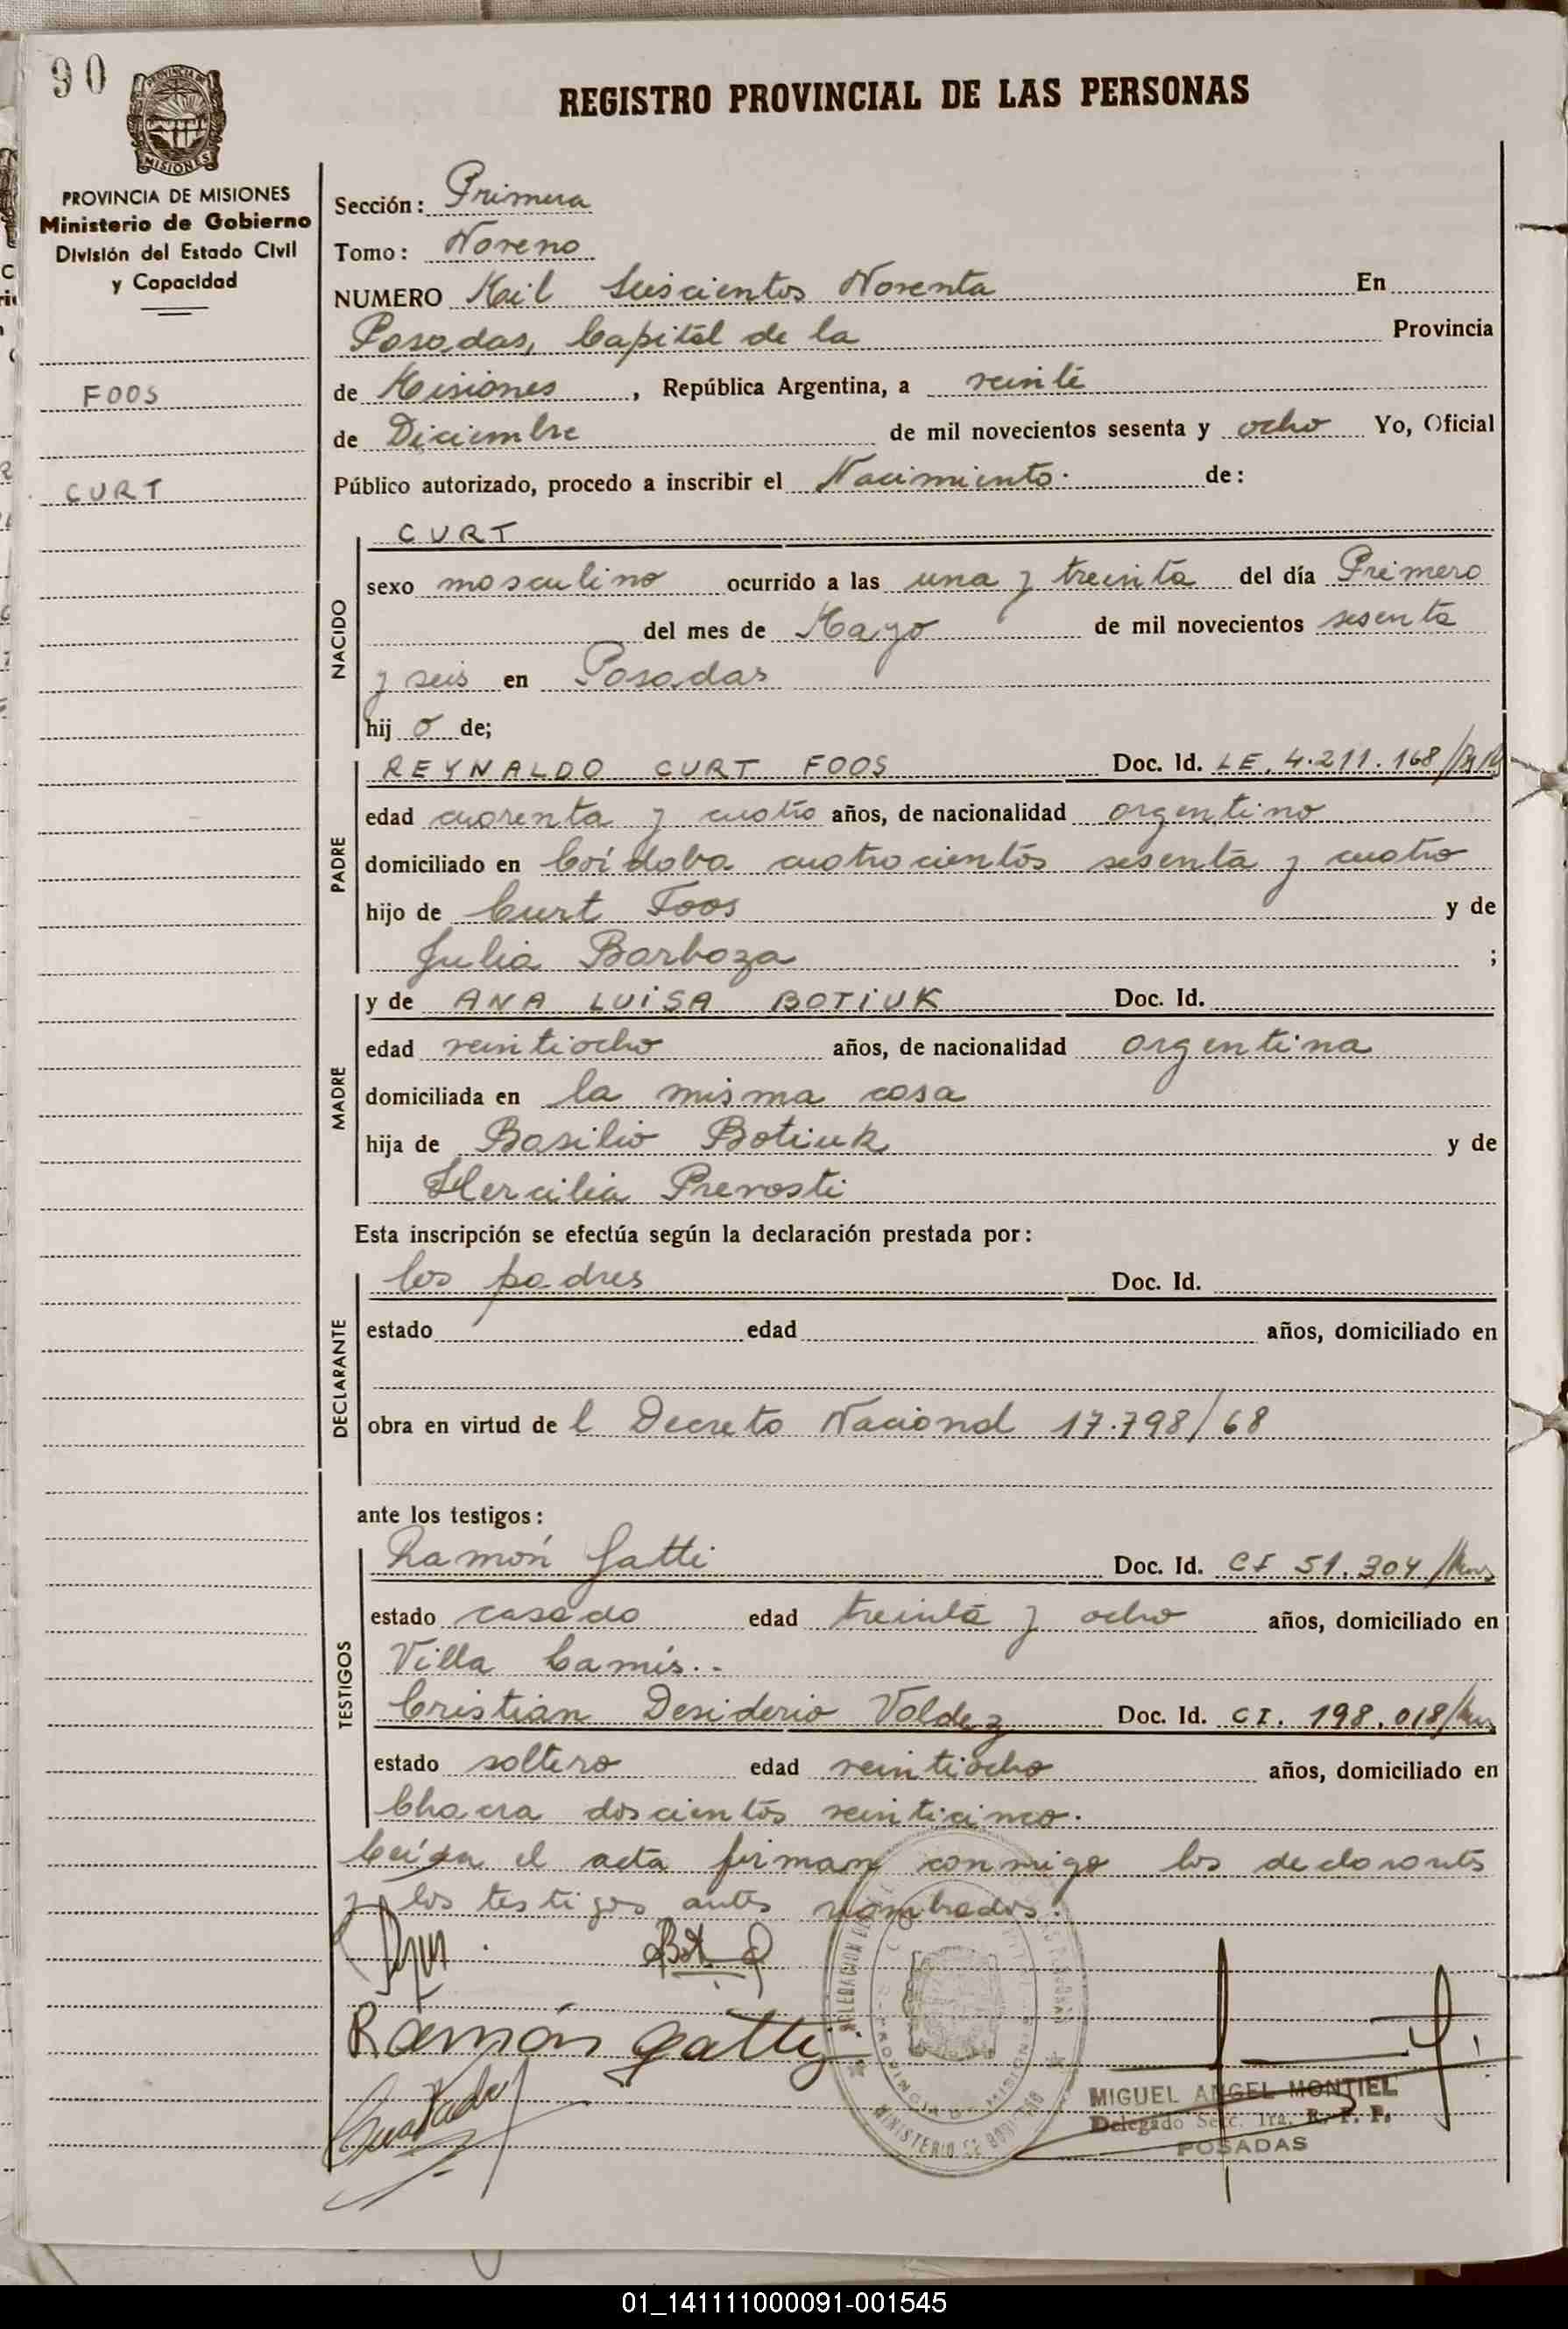 90
REGISTRO PROVINCIAL DE LAS PERSONAS
PROVINCIA DE MISIONES
PROVINCIA DE MISIONES
Ministerio de Gobierno
División del Estado Civil
y Capacidad
FOOS
CURT
Sección: Primera
Tomo: Noveno
NUMERO Mil Seiscientos Noventa En
Posadas, Capital de la Provincia
de Misiones, República Argentina, a veinte
de Diciembre de mil novecientos sesenta y ocho Yo, Oficial
Público autorizado, procedo a inscribir el Nacimiento. de:
NACIDO
CURT
sexo masculino ocurrido a las una y treinta del día Primero
del mes de Mayo de mil novecientos sesenta
y seis en Posadas
hij o de;
PADRE
REYNALDO CURT FOOS Doc. Id. LE. 4.211.168/
edad cuarenta y cuatro años, de nacionalidad argentino
domiciliado en Córdoba cuatrocientos sesenta y cuatro
hijo de Curt Foos y de
Julia Barboza ;
MADRE
y de ANA LUISA BOTIUK Doc. Id.
edad veintiocho años, de nacionalidad argentina
domiciliada en la misma casa
hija de Basilio Botiuk y de
Hercilia Prevosti
Esta inscripción se efectúa según la declaración prestada por:
DECLARANTE
los padres Doc. Id.
estado edad años, domiciliado en
obra en virtud de l Decreto Nacional 17.798/68
ante los testigos:
TESTIGOS
Ramón Gatti Doc. Id. CI 51.304/Mns
estado casado edad treinta y ocho años, domiciliado en
Villa Camis..
Cristian Desiderio Valdez Doc. Id. CI. 198.018/Mns
estado soltero edad veintiocho años, domiciliado en
Chacra doscientos veinticinco.
Leída el acta firman conmigo los declarantes
y los testigos antes nombrados.
Ramón Gatti
PROVINCIA DE MISIONES
MINISTERIO DE GOBIERNO
MIGUEL ANGEL MONTIEL
Delegado Secc. 1ra. R. P. P.
POSADAS
01_141111000091-001545